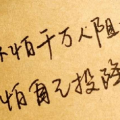 不怕千万人阻
怕自己投降